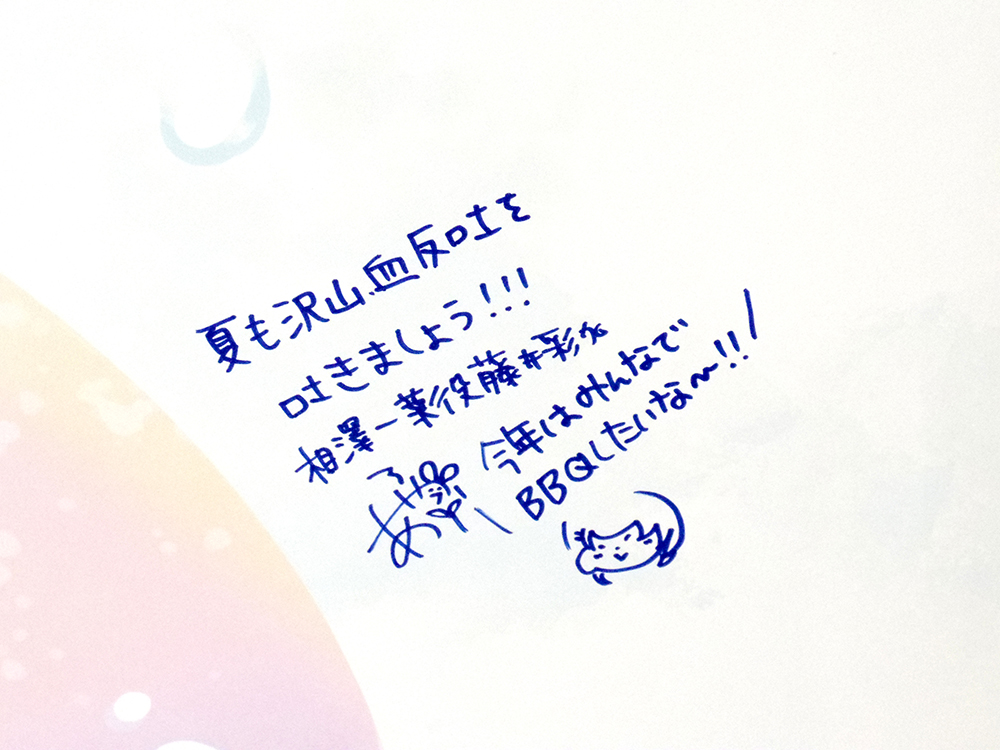 夏も沢山血反吐を
吐きましょう!!!
相澤一葉役藤井彩加
\今年はみんなで
BBQしたいな〜!!/